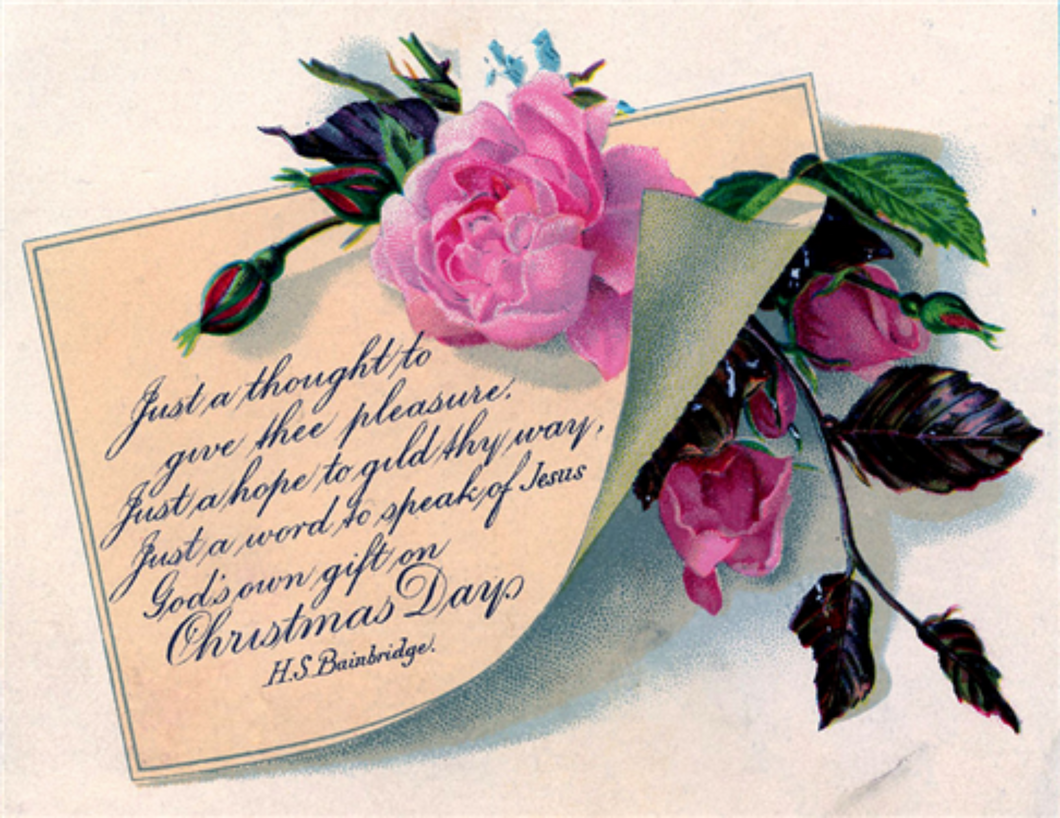 Just a thought to
give thee pleasure.
Just a hope to gild thy way,
Just a word to speak of Jesus
God's own gift on
Christmas Day
H.S. Bainbridge.